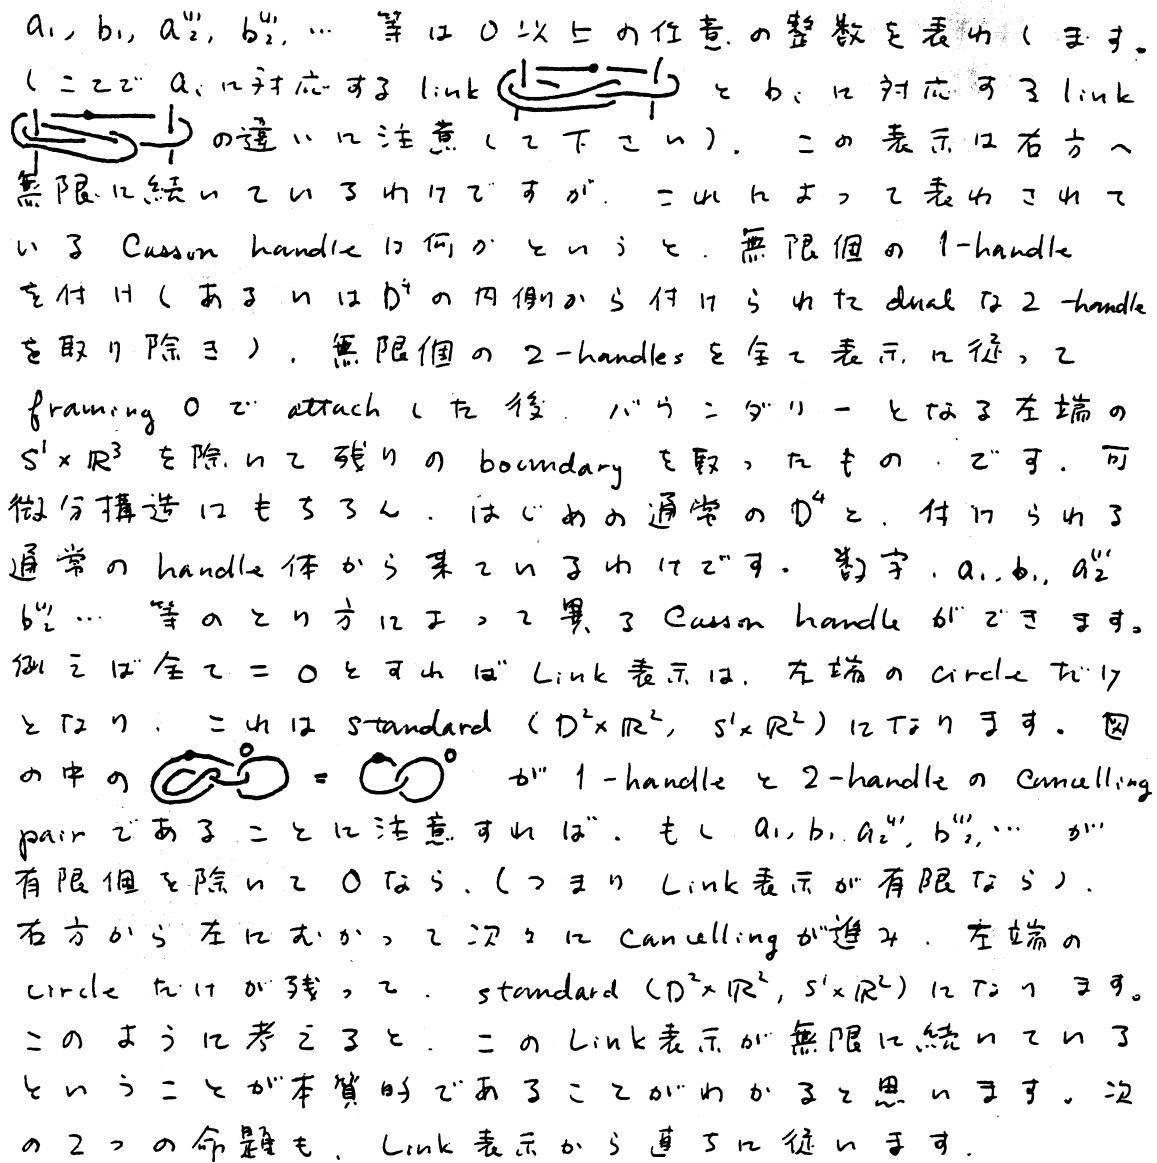 a₁, b₁, a₂⁽ⁱ⁾, b₂⁽ⁱ⁾, … 等は 0 以上の任意の整数を表わします。
(ここで aᵢ に対応する link と bᵢ に対応する link
の違いに注意して下さい). この表示は右方へ
無限に続いているわけですが. これによって表わされて
いる Casson handle は何かというと. 無限個の 1-handle
を付け (あるいは D⁴ の内側から付けられた dual な 2-handle
を取り除き). 無限個の 2-handles を全て表示に従って
framing 0 で attach した後. バウンダリーとなる左端の
S¹×ℝ³ を除いて残りの boundary を取ったもの. です. 可
微分構造はもちろん. はじめの通常の D⁴ と. 付けられる
通常の handle 体から来ているわけです。 数字. a₁, b₁, a₂⁽ⁱ⁾
b₂⁽ⁱ⁾ … 等のとり方によって異る Casson handle ができます。
例えば全て = 0 とすれば Link 表示は. 左端の circle だけ
となり. これは standard (D²×ℝ², S¹×ℝ²) になります。 図
の中の 0 = 0 が 1-handle と 2-handle の cancelling
pair であることに注意すれば. もし a₁, b₁ a₂⁽ⁱ⁾, b₂⁽ⁱ⁾, … が
有限個を除いて 0 なら. (つまり Link 表示が有限なら).
右方から左にむかって次々に cancelling が進み. 左端の
circle だけが残って. standard (D²×ℝ², S¹×ℝ²) になります。
このように考えると. この Link 表示が無限に続いている
ということが本質的であることがわかると思います。 次
の 2 つの命題も. Link 表示から直ちに従います.